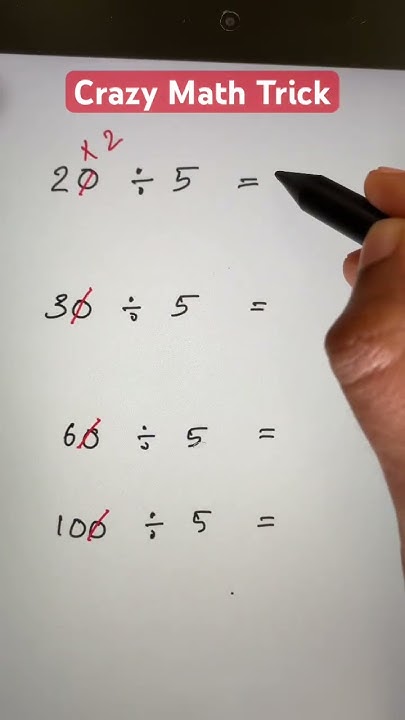 Crazy Math Trick
x 2
20 ÷ 5 =
30 ÷ 5 =
60 ÷ 5 =
100 ÷ 5 =